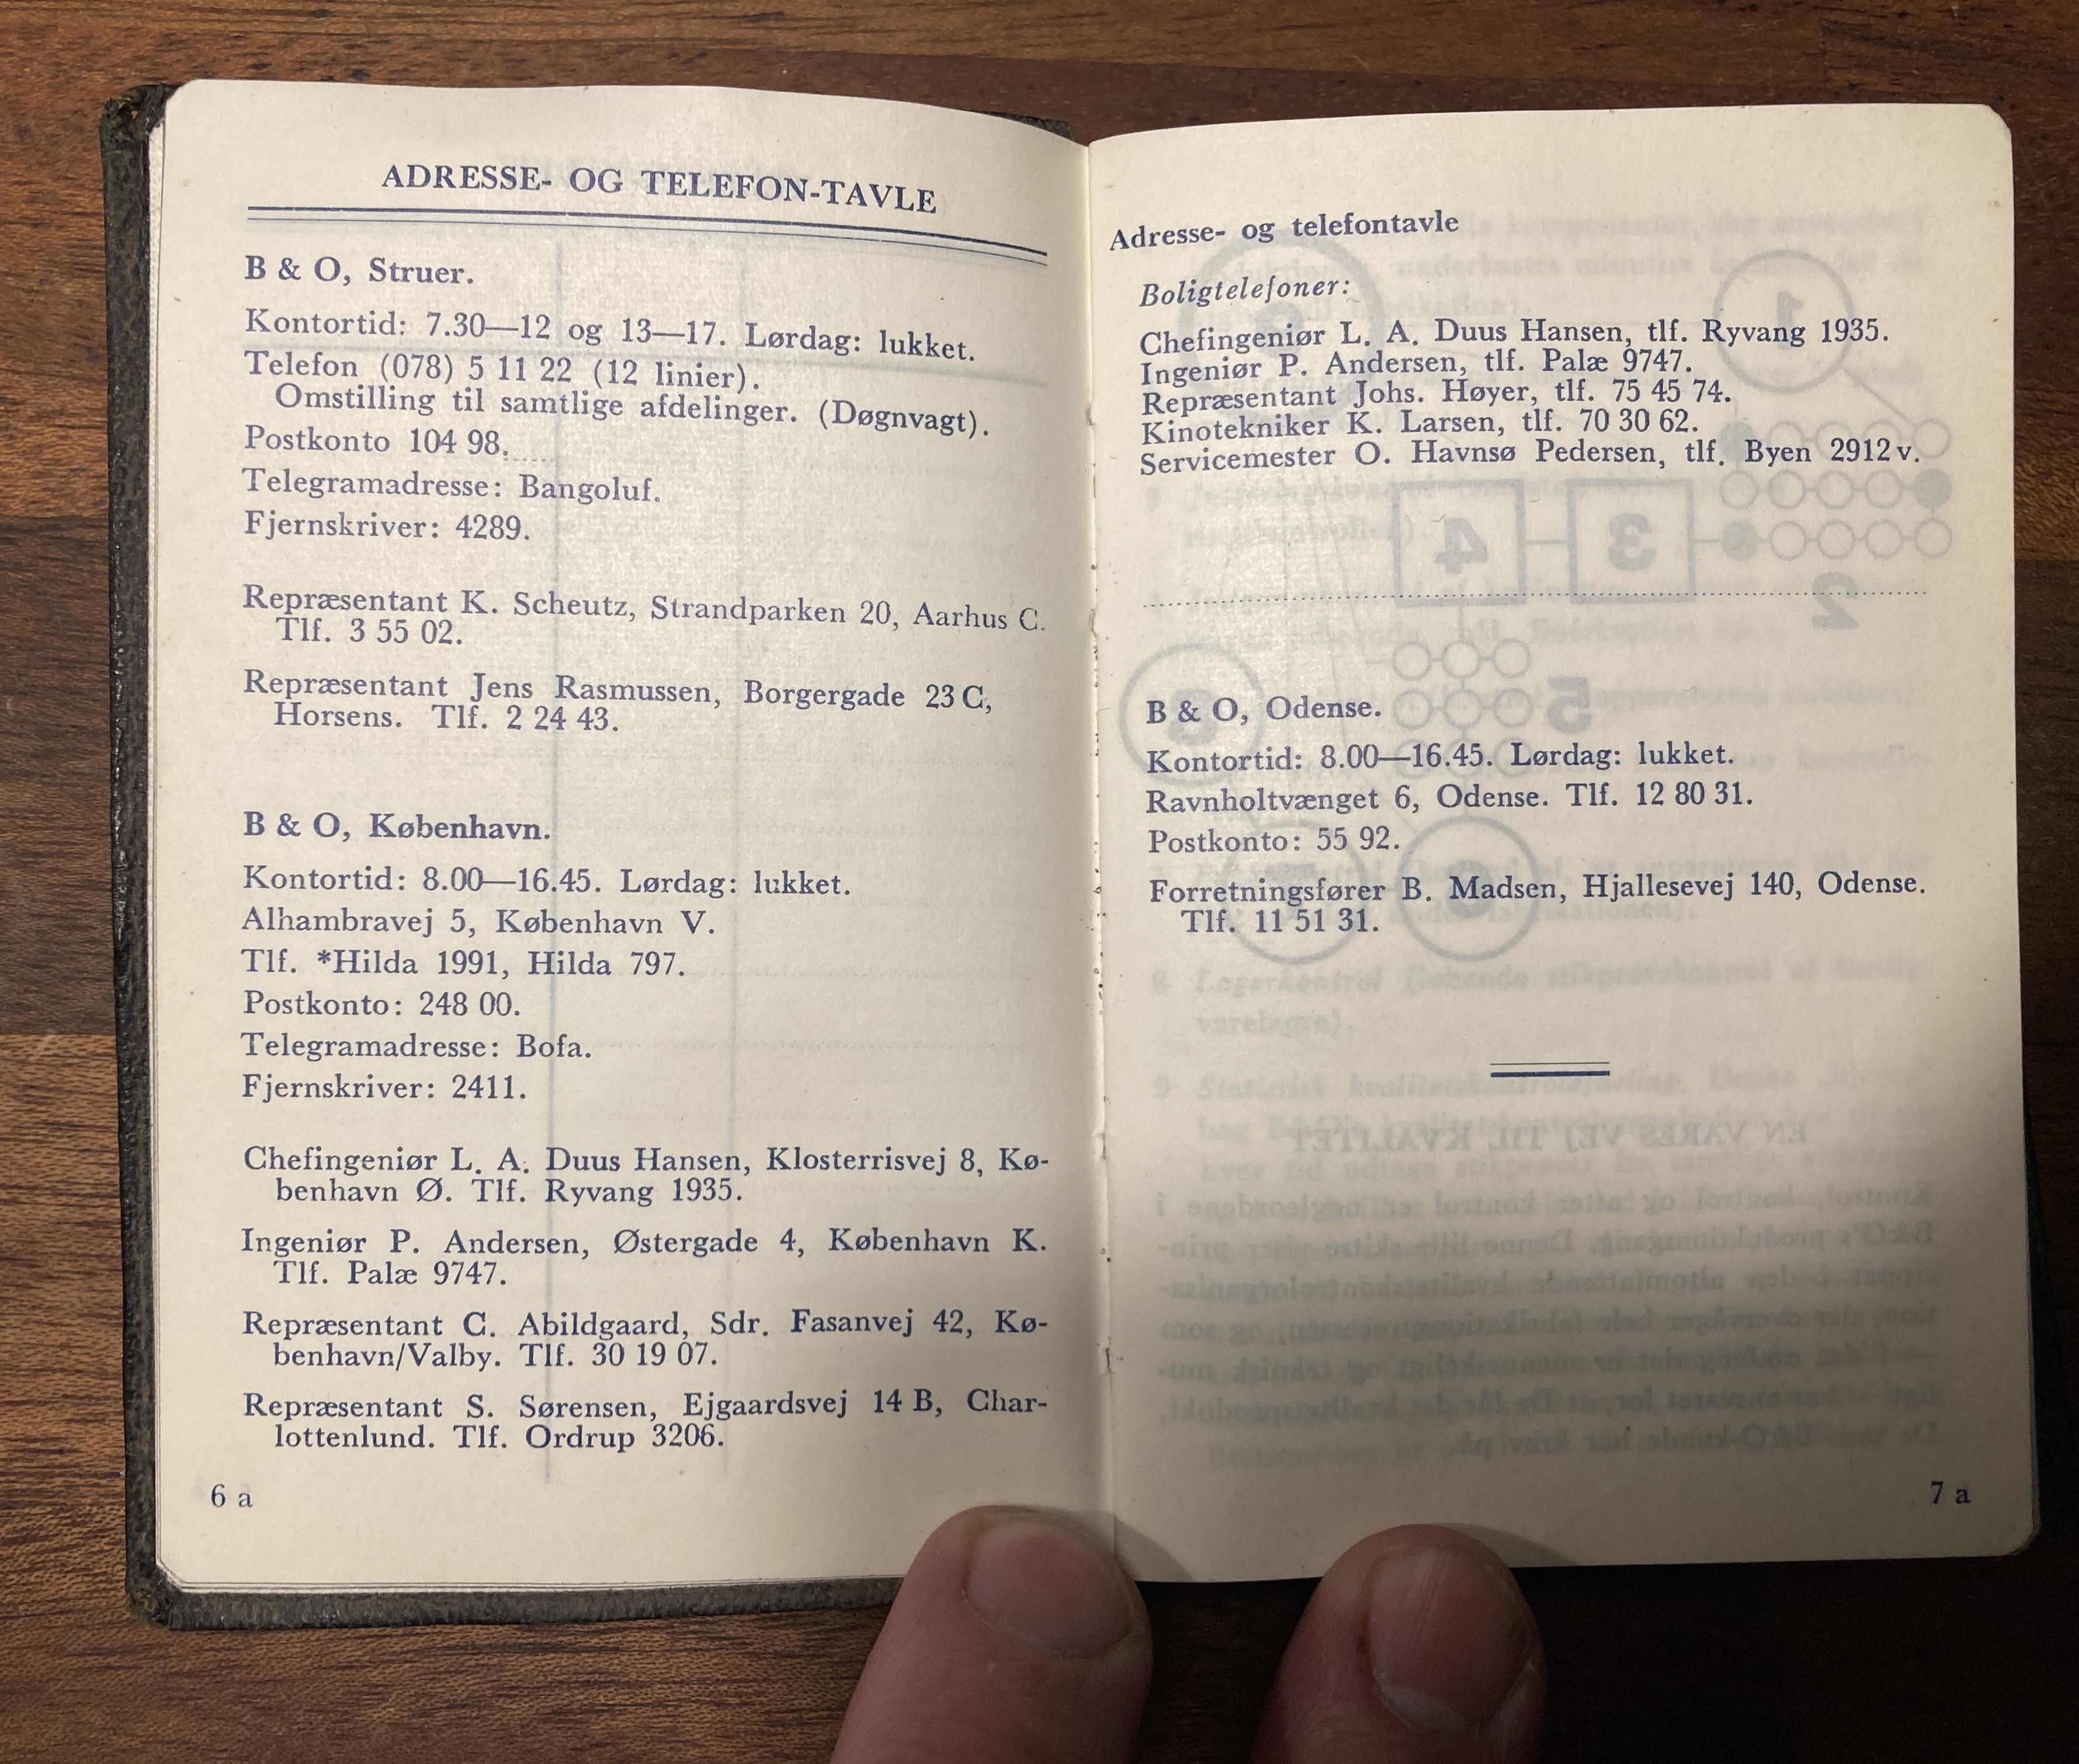 ADRESSE- OG TELEFON-TAVLE
B & O, Struer.
Kontortid: 7.30—12 og 13—17. Lørdag: lukket.
Telefon (078) 5 11 22 (12 linier).
Omstilling til samtlige afdelinger. (Døgnvagt).
Postkonto 104 98.
Telegramadresse: Bangoluf.
Fjernskriver: 4289.
Repræsentant K. Scheutz, Strandparken 20, Aarhus C.
Tlf. 3 55 02.
Repræsentant Jens Rasmussen, Borgergade 23 C,
Horsens. Tlf. 2 24 43.
B & O, København.
Kontortid: 8.00—16.45. Lørdag: lukket.
Alhambravej 5, København V.
Tlf. *Hilda 1991, Hilda 797.
Postkonto: 248 00.
Telegramadresse: Bofa.
Fjernskriver: 2411.
Chefingeniør L. A. Duus Hansen, Klosterrisvej 8, Kø-
benhavn Ø. Tlf. Ryvang 1935.
Ingeniør P. Andersen, Østergade 4, København K.
Tlf. Palæ 9747.
Repræsentant C. Abildgaard, Sdr. Fasanvej 42, Kø-
benhavn/Valby. Tlf. 30 19 07.
Repræsentant S. Sørensen, Ejgaardsvej 14 B, Char-
lottenlund. Tlf. Ordrup 3206.
6 a
Adresse- og telefontavle
Boligtelefoner:
Chefingeniør L. A. Duus Hansen, tlf. Ryvang 1935.
Ingeniør P. Andersen, tlf. Palæ 9747.
Repræsentant Johs. Høyer, tlf. 75 45 74.
Kinotekniker K. Larsen, tlf. 70 30 62.
Servicemester O. Havnsø Pedersen, tlf. Byen 2912 v.
B & O, Odense.
Kontortid: 8.00—16.45. Lørdag: lukket.
Ravnholtvænget 6, Odense. Tlf. 12 80 31.
Postkonto: 55 92.
Forretningsfører B. Madsen, Hjallesevej 140, Odense.
Tlf. 11 51 31.
7 a